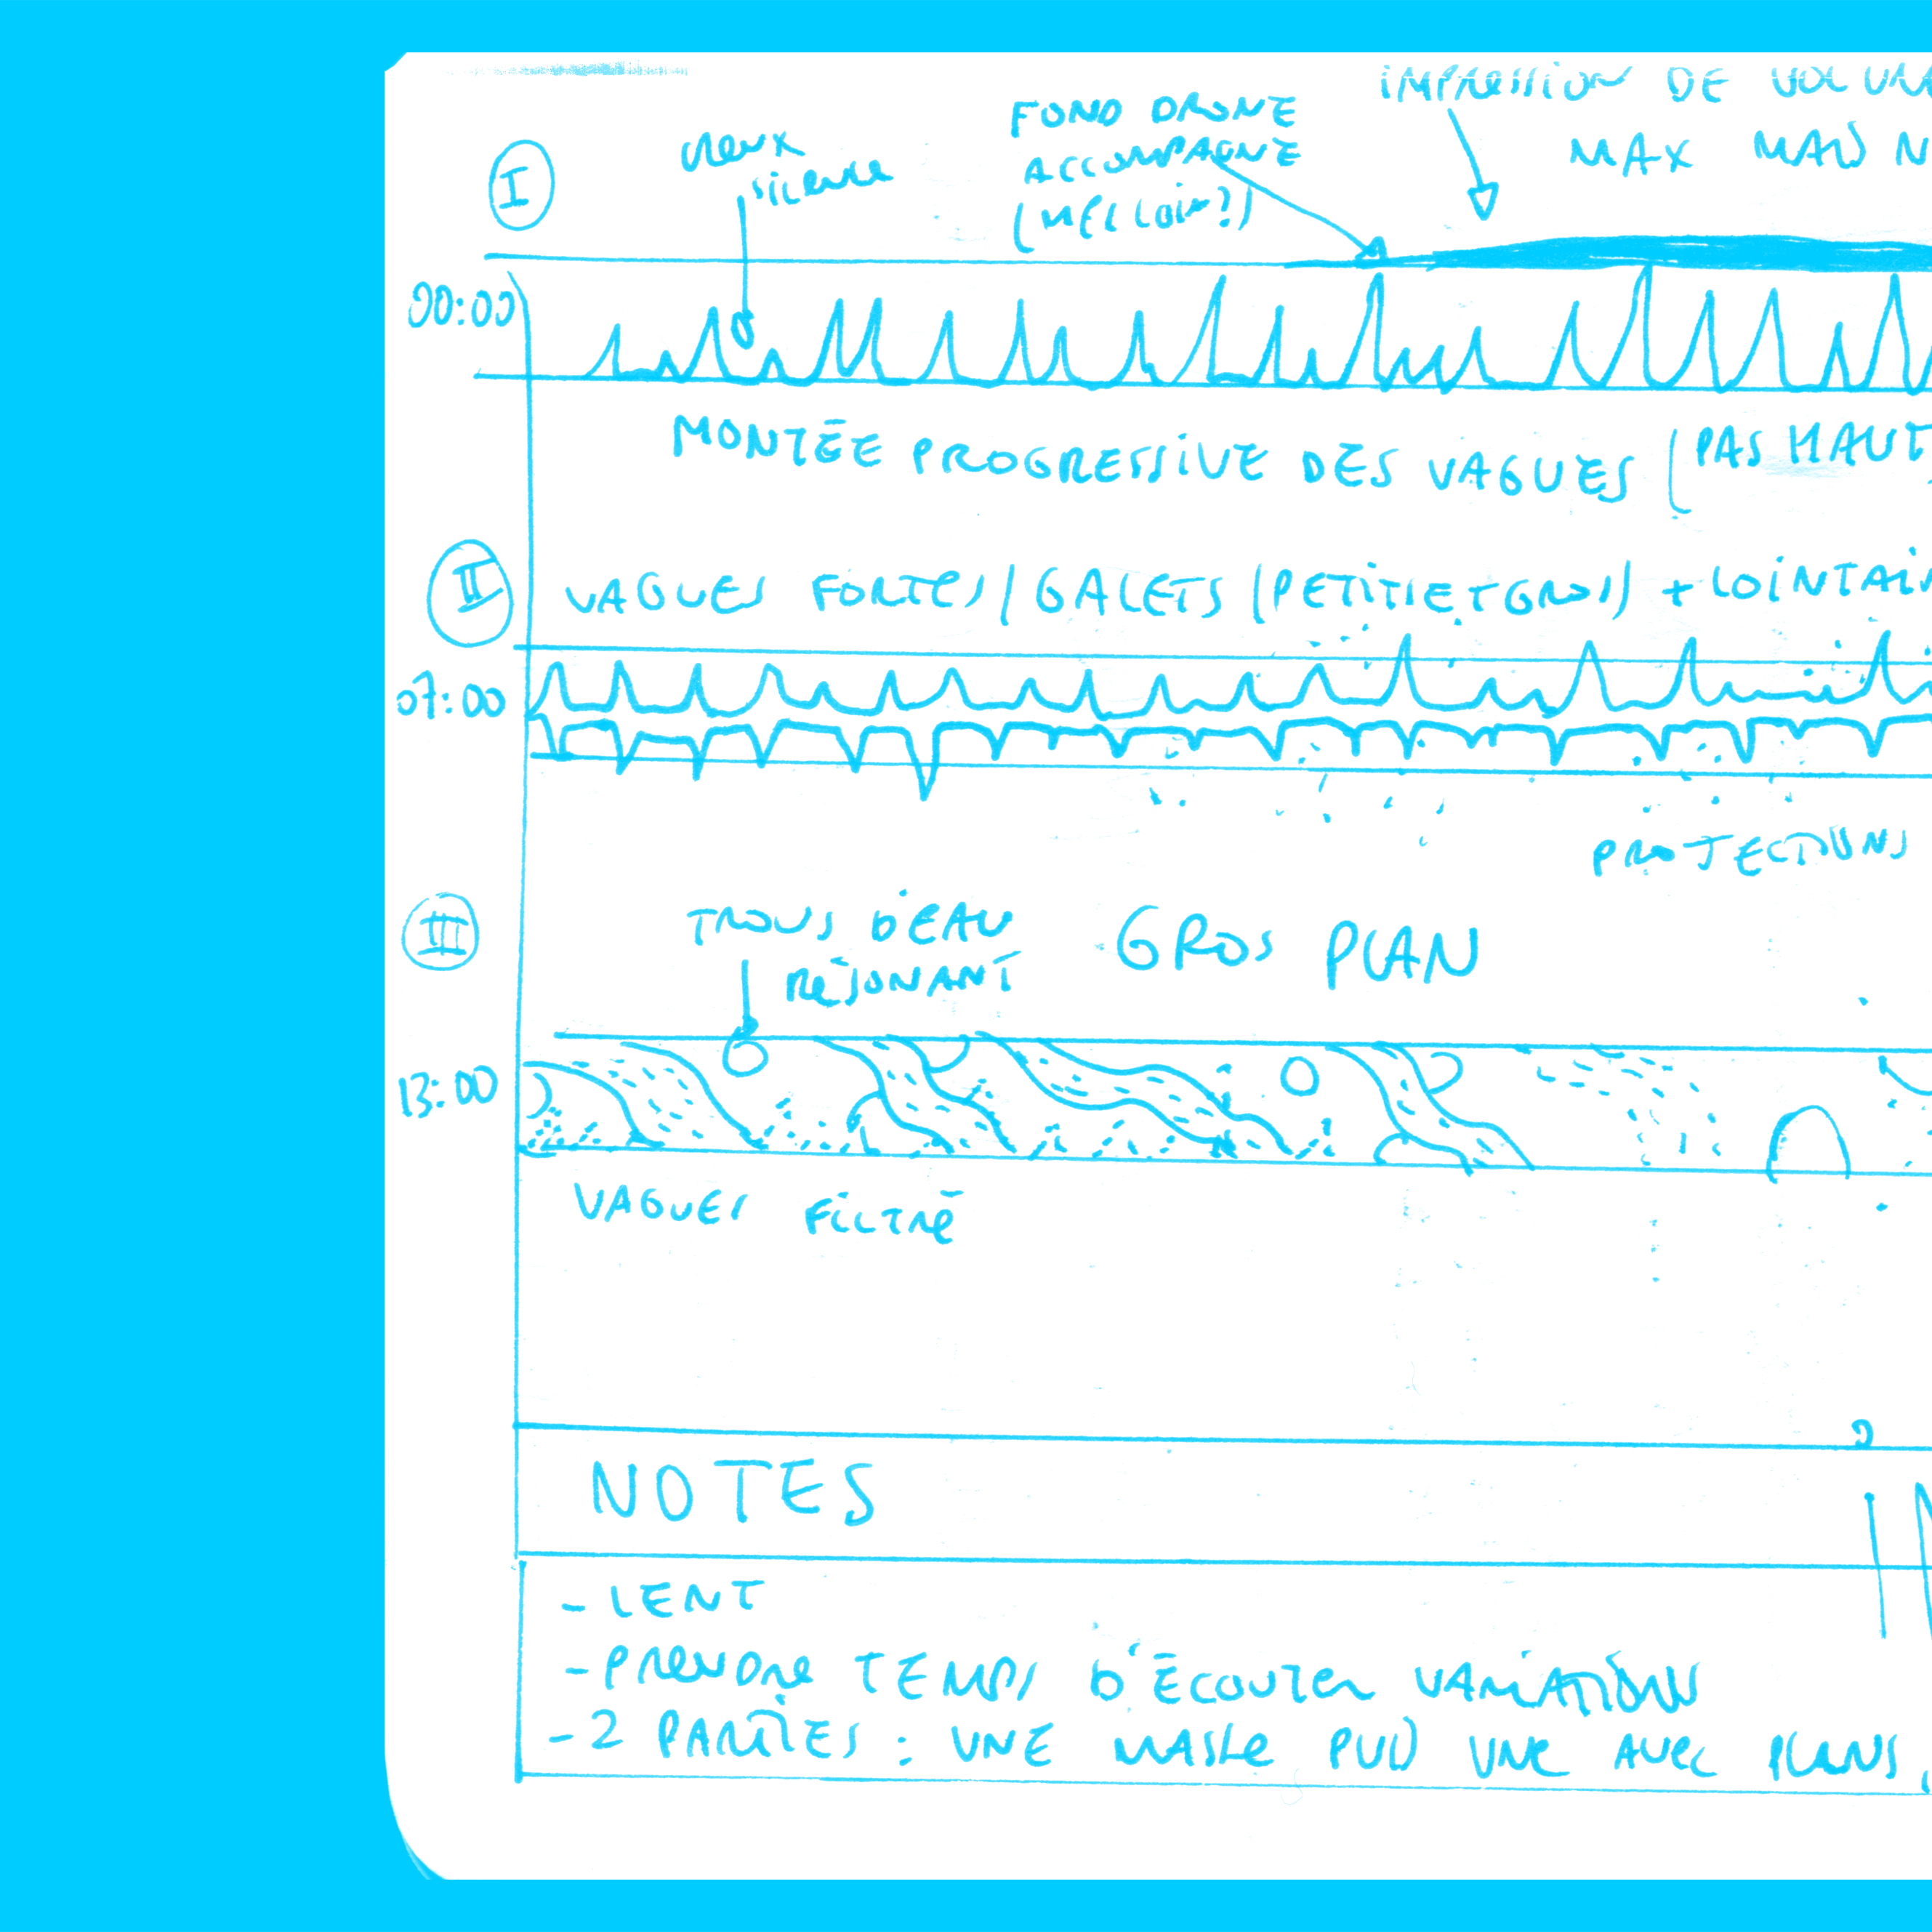 IMPRESSION DE VOLUM
MAX MAIS N
FOND DRONE
ACCOMPAGNE
I
silence
00:00
MONTÉE PROGRESSIVE DES VAGUES (PAS HAUT
II
VAGUES FORTES / GALETS (PETITS ET GROS) + LOINTAIN
07:00
PROJECTIONS
III
TROUS D'EAU
RÉSONANT
GROS PLAN
13:00
VAGUES FILTRÉ
NOTES
- LENT
- PRENDRE TEMPS D'ÉCOUTER VARIATIONS
- 2 PARTIES : UNE MASSE PUIS UNE AVEC PLANS